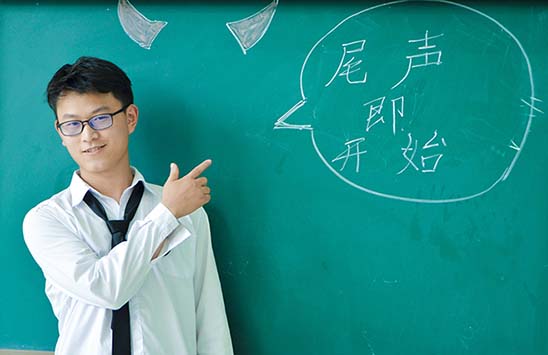 尾声
即
开始